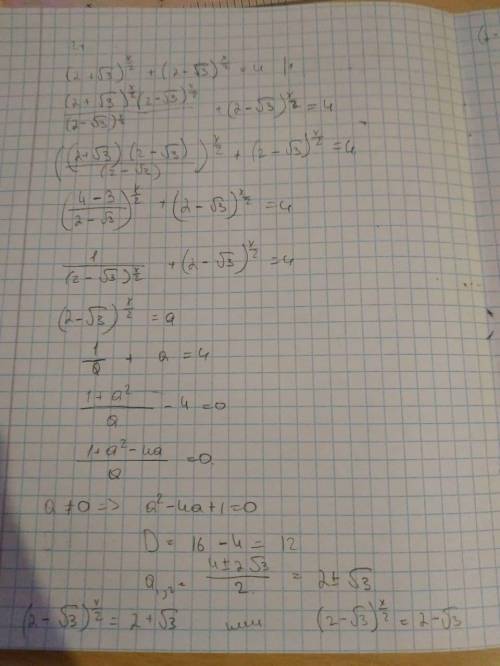 (2+√3)^(x/2) + (2-√3)^(x/2) = 4
(2+√3)^(x/2) (2-√3)^(x/2) / (2-√3)^(x/2) + (2-√3)^(x/2) = 4
((2+√3)(2-√3) / (2-√2))^(x/2) + (2-√3)^(x/2) = 4
((4-3) / (2-√3))^(x/2) + (2-√3)^(x/2) = 4
1 / (2-√3)^(x/2) + (2-√3)^(x/2) = 4
(2-√3)^(x/2) = a
1/a + a = 4
(1+a²)/a - 4 = 0
(1+a²-4a)/a = 0
a ≠ 0 => a²-4a+1=0
D = 16 - 4 = 12
a₁,₂ = (4±2√3)/2 = 2±√3
(2-√3)^(x/2) = 2+√3 или (2-√3)^(x/2) = 2-√3